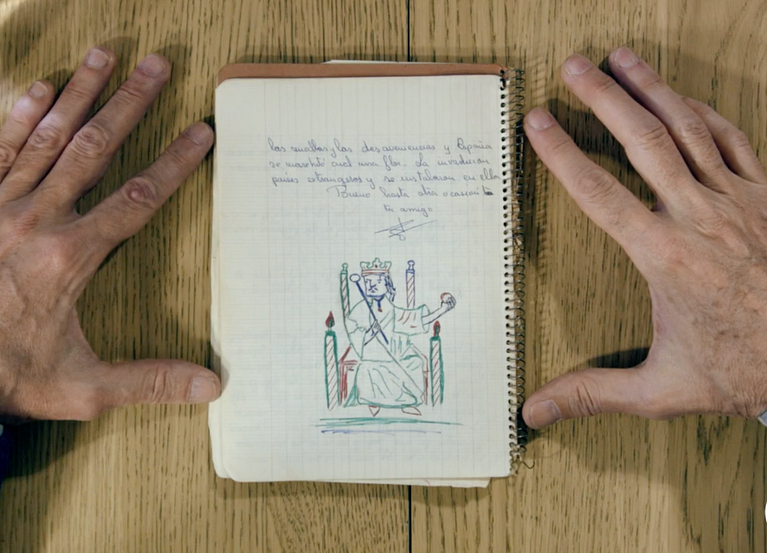 las envidias y las desavenencias y España
se marchitó cual una flor. La invadieron
países extrangeros y se instalaron en ella
Bueno hasta otra ocasión
tu amigo